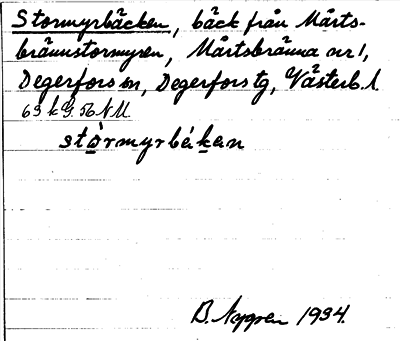 Stormyrbäcken, bäck från Mårts-
brännstormyren, Mårtsbränna nr 1,
Degerfors sn, Degerfors tg, Västerb. l.
63 k G. 56 N M.
stòrmyrbéken
B. Nygren 1934.